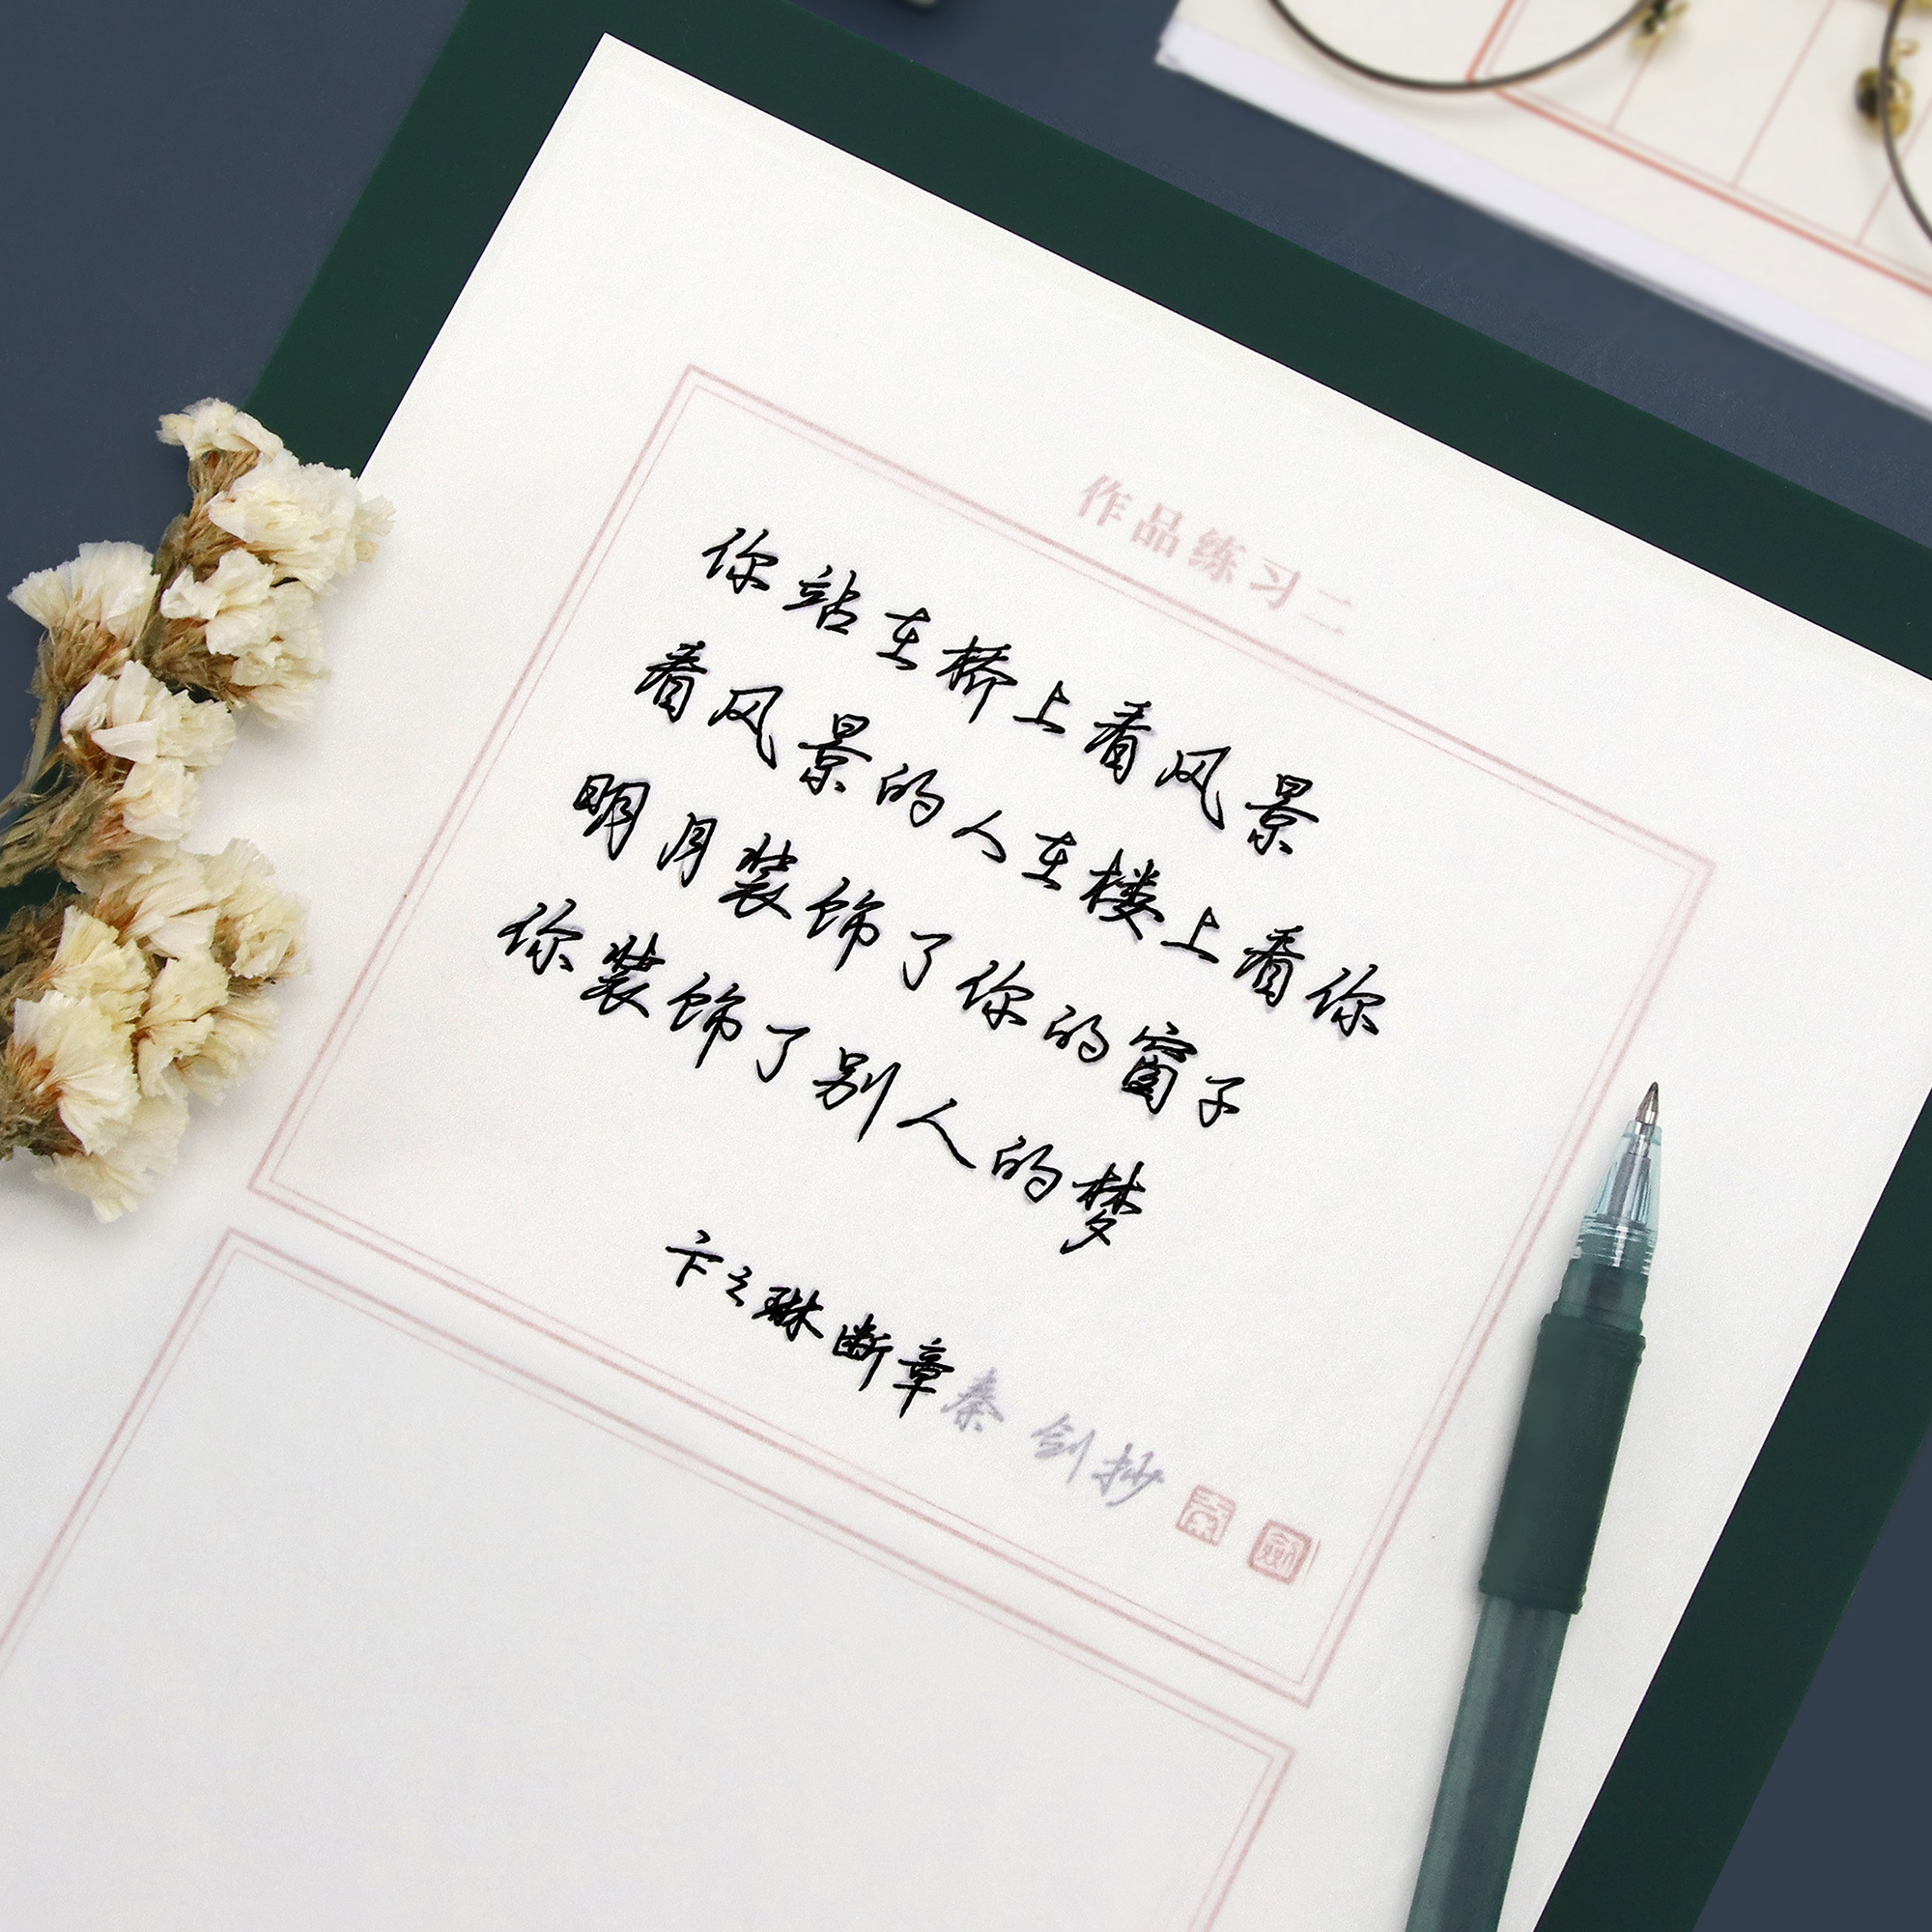 作品练习二
你站在桥上看风景
看风景的人在楼上看你
明月装饰了你的窗子
你装饰了别人的梦
卞之琳断章秦剑抄
秦 剑